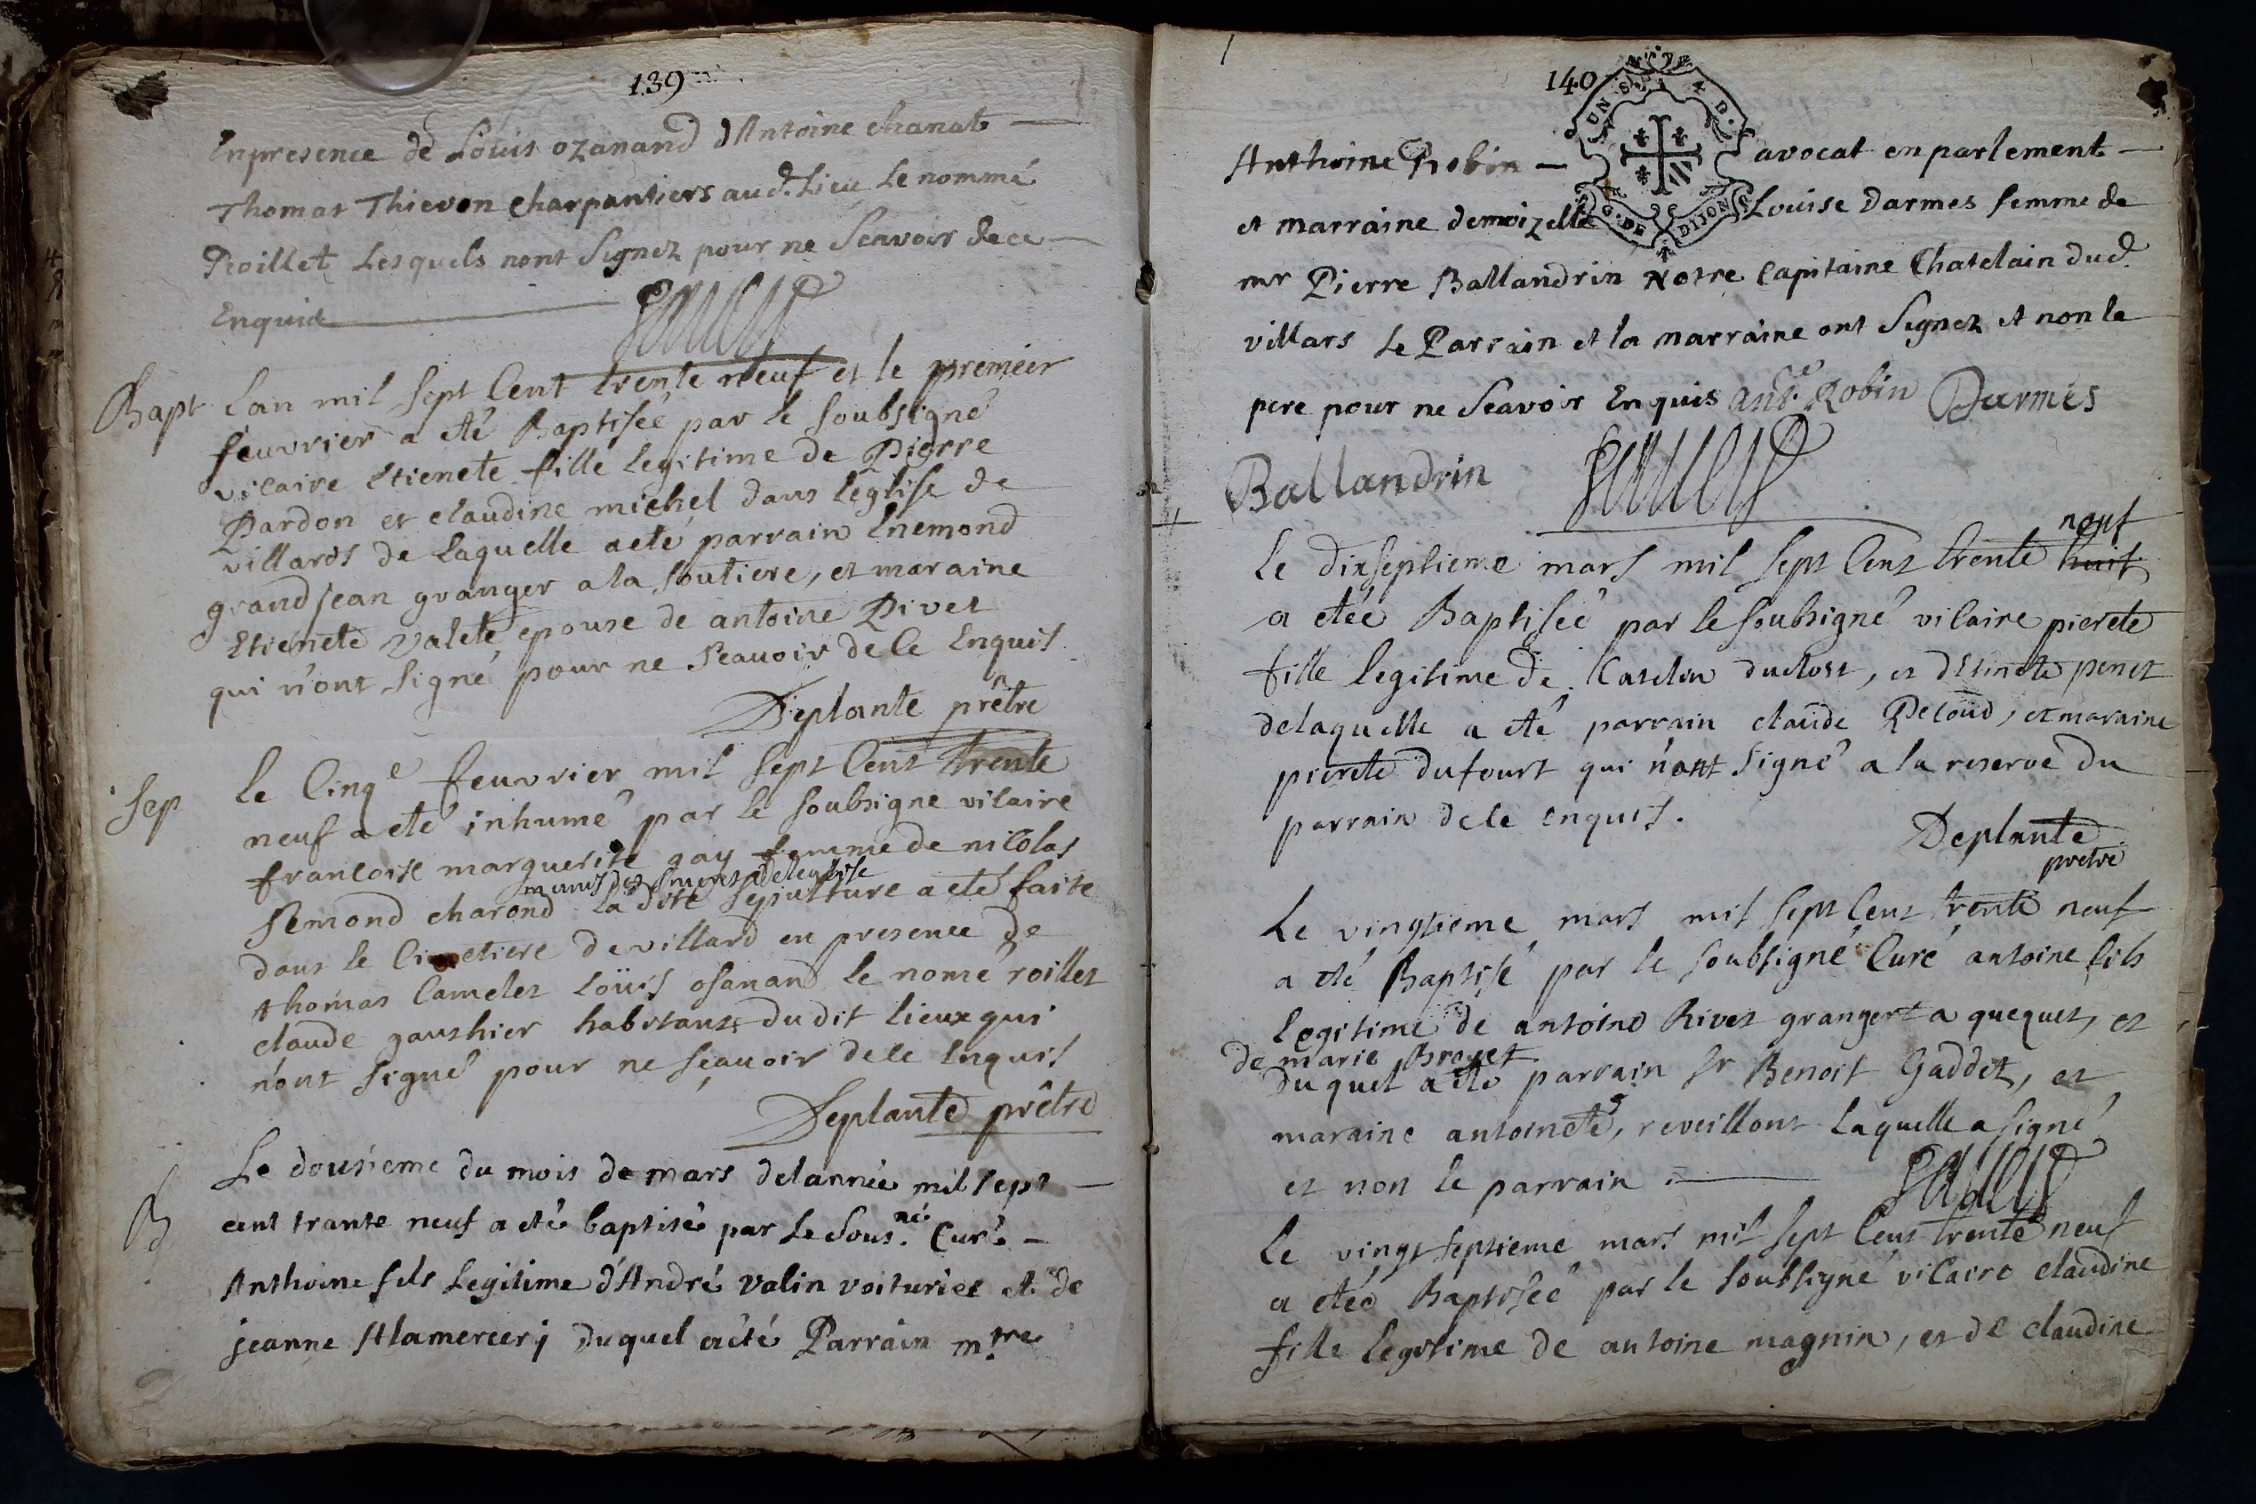 139
En presence de Louis ozanand d'Antoine chanat
Thomas Thievon charpantiers aud. Lieu Le nommé
Roillet Lesquels nont Signez pour ne Scavoir dece
Enquis
Bapt
Lan mil sept Cent trente neuf et le premier
feuvrier a eté Baptisée par le soubsigné
vicaire Etienete fille legitime de Pierre
Pardon et claudine michel dans leglise de
villards de laquelle a eté parrain Enemond
grandjean granger a la soutiere, et maraine
Etienete Valete epouse de antoine Rivet
qui n'ont signé pour ne sçauoir de ce Enquis
Deplante prêtre
Sep
le Cinq.e feuvrier mil sept Cent trente
neuf a eté inhumé par le soubsigne vicaire
francoise marguerite gay femme de nicolas
munis des
Semond charond la dite Sepulture a eté faite
dans le Cimetiere de villard en presence de
thomas Camelet Loüis osanand le nomé roillet
claude gauthier habitants du dit lieux qui
n'ont signé pour ne sçauoir de ce Enquis
Deplante prêtre
B
Le dousieme du mois de mars delannée mil sept
cent trante neuf a eté baptisé par Le Sous.né Curé
Anthoine fils Legitime d'André Valin voiturier et de
jeanne Alamercery duquel a été Parrain m.tre
140
UN SOL 4 D.
G. DE DIJON
Anthoine Robin avocat en parlement
et marraine demoizelle Louise Darmes femme de
mr Pierre Ballandrin Notre Capitaine Chatelain dud.
villars Le Parrain et la marraine ont Signez et non le
pere pour ne Scavoir Enquis Ant.e Robin Darmes
Ballandrin
neuf
le dixseptieme mars mil sept Cent trente huit
a etée Baptisée par le soubsigné vicaire pierete
fille legitime de Catelin duclost, et penet
delaquelle a eté parrain claude et maraine
pierete dufourt qui n'ont signé a la reserve du
parrain de ce enquis.
Deplante
pretre
Le vingtieme mars mil sept Cent trente neuf
a eté Baptisé par le soubsigné Curé antoine fils
legitime de antoine Rivet granger a quequet, et
de marie Broyet
duquel a eté parrain Sr Benoit Gaddet, et
maraine antoinete, reveillont laquelle a signé
et non le parrain
Le vingt septieme mars mil sept Cent trente neuf
a etée Baptisée par le soubsigné vicaire claudine
fille legitime de antoine magnin, et de claudine